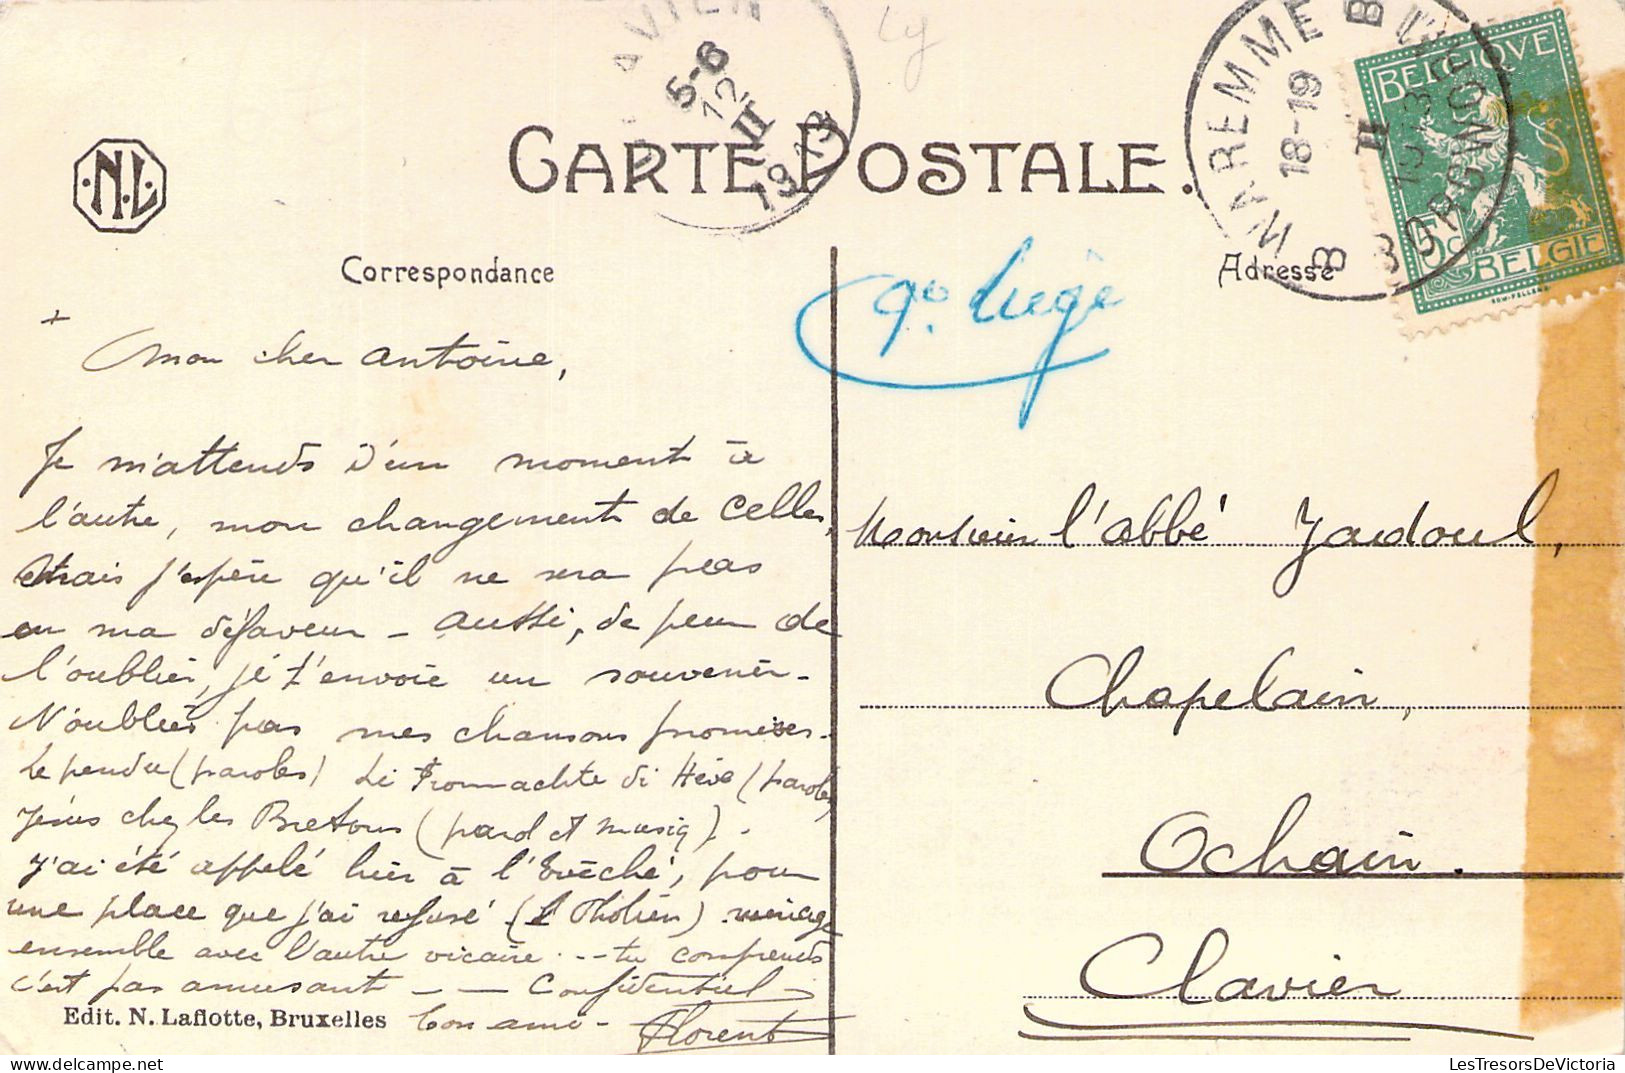 AVIEN
5-6
12
II
1913
Ly
WAREMME B
18-19
II
1913
B BORGWORM
BELGIQUE
5 C
BELGIE
·N.L·
CARTE POSTALE.
Correspondance
Adresse
9° Liège
+
Mon cher Antoine,
Je m'attends d'un moment à
l'autre, mon changement de Celles,
Mais j'espère qu'il ne sera pas
en ma défaveur - Aussi, de peur de
l'oublier, je t'envoie un souvenir -
N'oublies pas mes chansons promises -
Le pendu (paroles) Li di Hève (paroles)
Jésus chez les Bretons (parol et musiq) -
J'ai été appelé hier à l'Evêché, pour
une place que j'ai refusé ménage
ensemble avec l'autre vicaire ... tu comprends
c'est pas amusant - - Confidentiel -
ton ami - Florent
Edit. N. Laflotte, Bruxelles
Monsieur l'abbé Jadoul,
Chapelain,
Ochain.
Clavier
LesTresorsDeVictoria